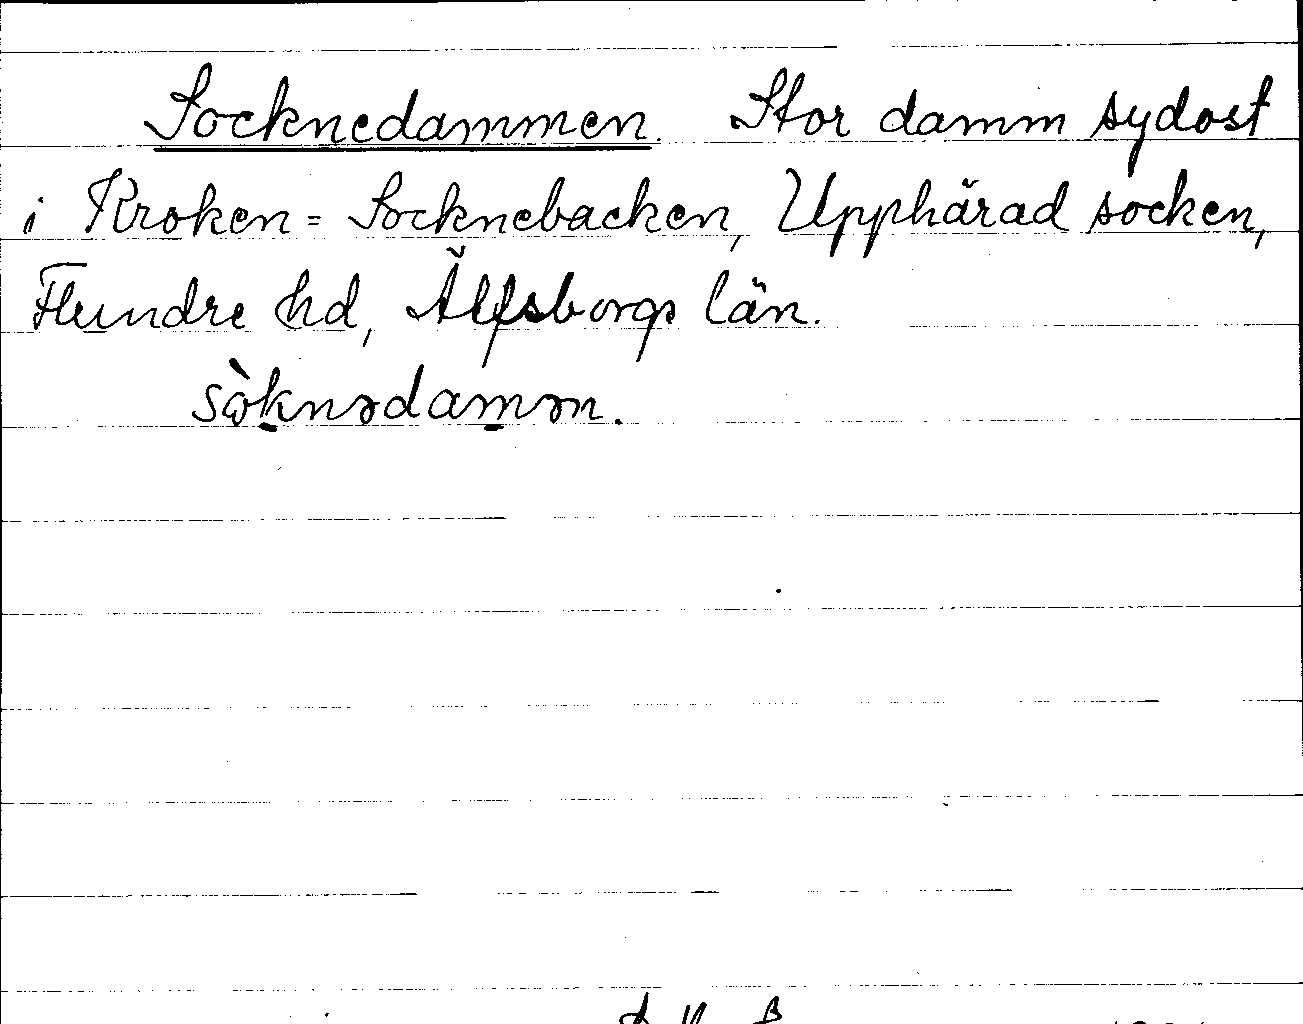 Socknedammen. Stor damm sydost
i Kroken = Socknebacken, Upphärad socken,
Flundre hd, Älfsborgs län.
sòknədamən.